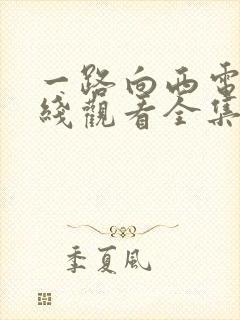 一路向西電
綫觀看全集
季夏風